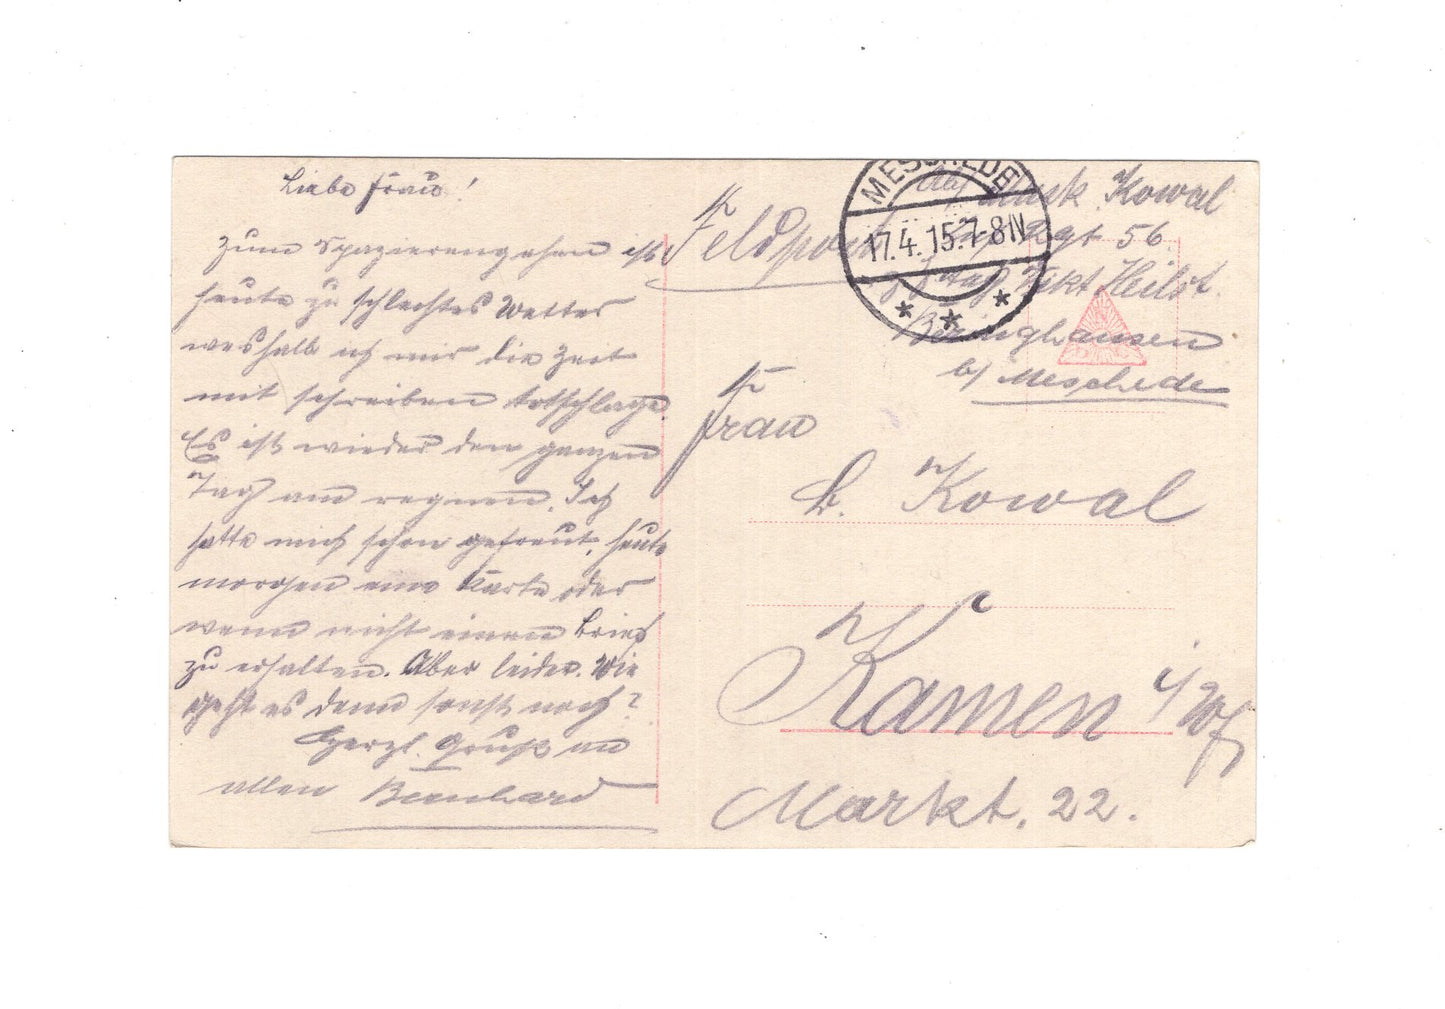 Liebe Frau!
Zum Spazierengehen ists
heute zu schlechtes Wetter
weshalb ich mir die Zeit
mit schreiben totschlage.
Es ist wieder den ganzen
Tag am regnen. Ich
hatte mich schon gefreut, heute
morgen eine Karte oder
wenn nicht einen Brief
zu erhalten. Aber leider. Wie
geht es denn sonst noch?
Herzl. Gruß an
allen Bernhard
Feldpost
MESCHEDE
17.4.15.7-8N
Abs Musk. Kowal
Rgt 56
Beringhausen
b/ Meschede
Frau
B. Kowal
Kamen i/Wf
Markt. 22.